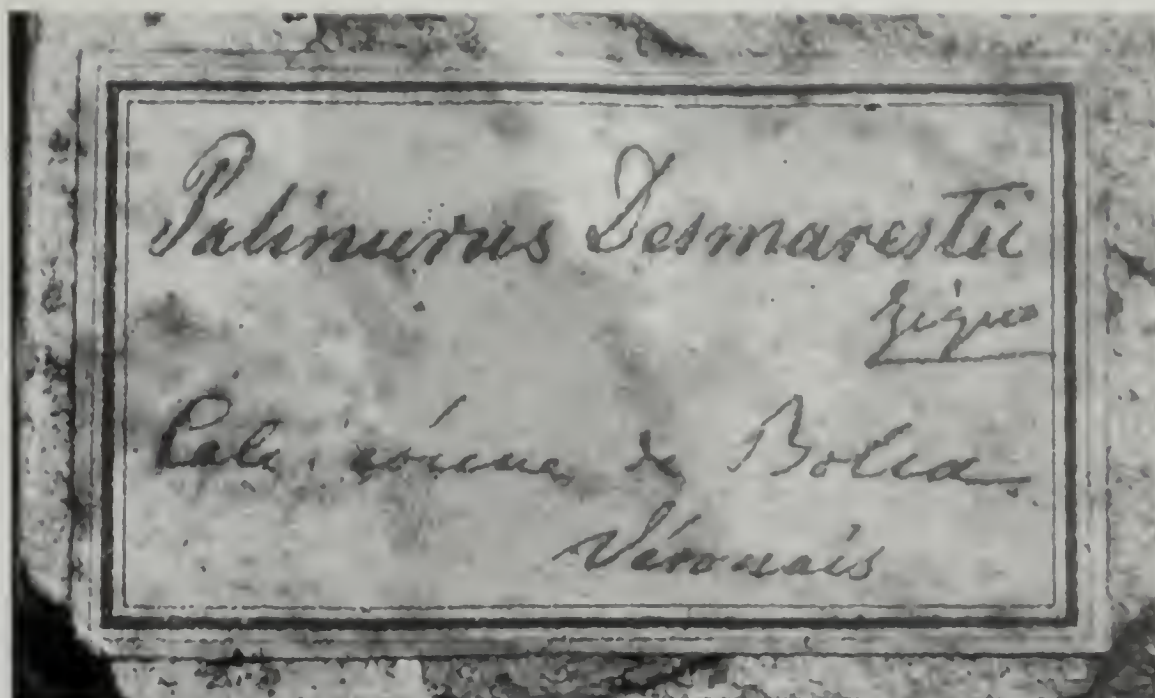 Palinurus Desmarestii
Zigno
Calc. éocène, de Bolca
Véronais